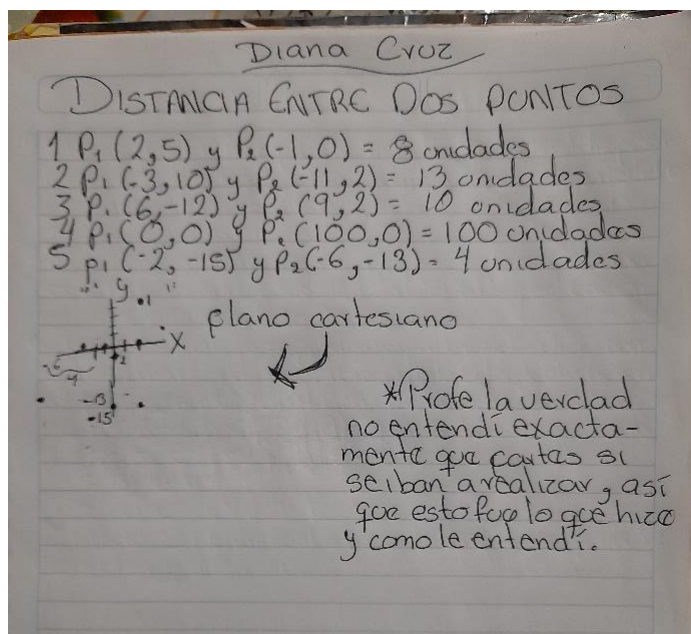 Diana Cruz
DISTANCIA ENTRE DOS PUNTOS
1 P₁ (2,5) y P₂ (-1,0) = 8 unidades
2 P₁ (-3,10) y P₂ (-11,2) = 13 unidades
3 P₁ (6,-12) y P₂ (9,2) = 10 unidades
4 P₁ (0,0) y P₂ (100,0) = 100 unidades
5 P₁ (-2,-15) y P₂ (-6,-13) = 4 unidades
y
1
plano cartesiano
X
2
4
-13
-15
*Profe la verdad
no entendí exacta-
mente que partes si
se iban a realizar, así
que esto fue lo que hice
y como le entendí.